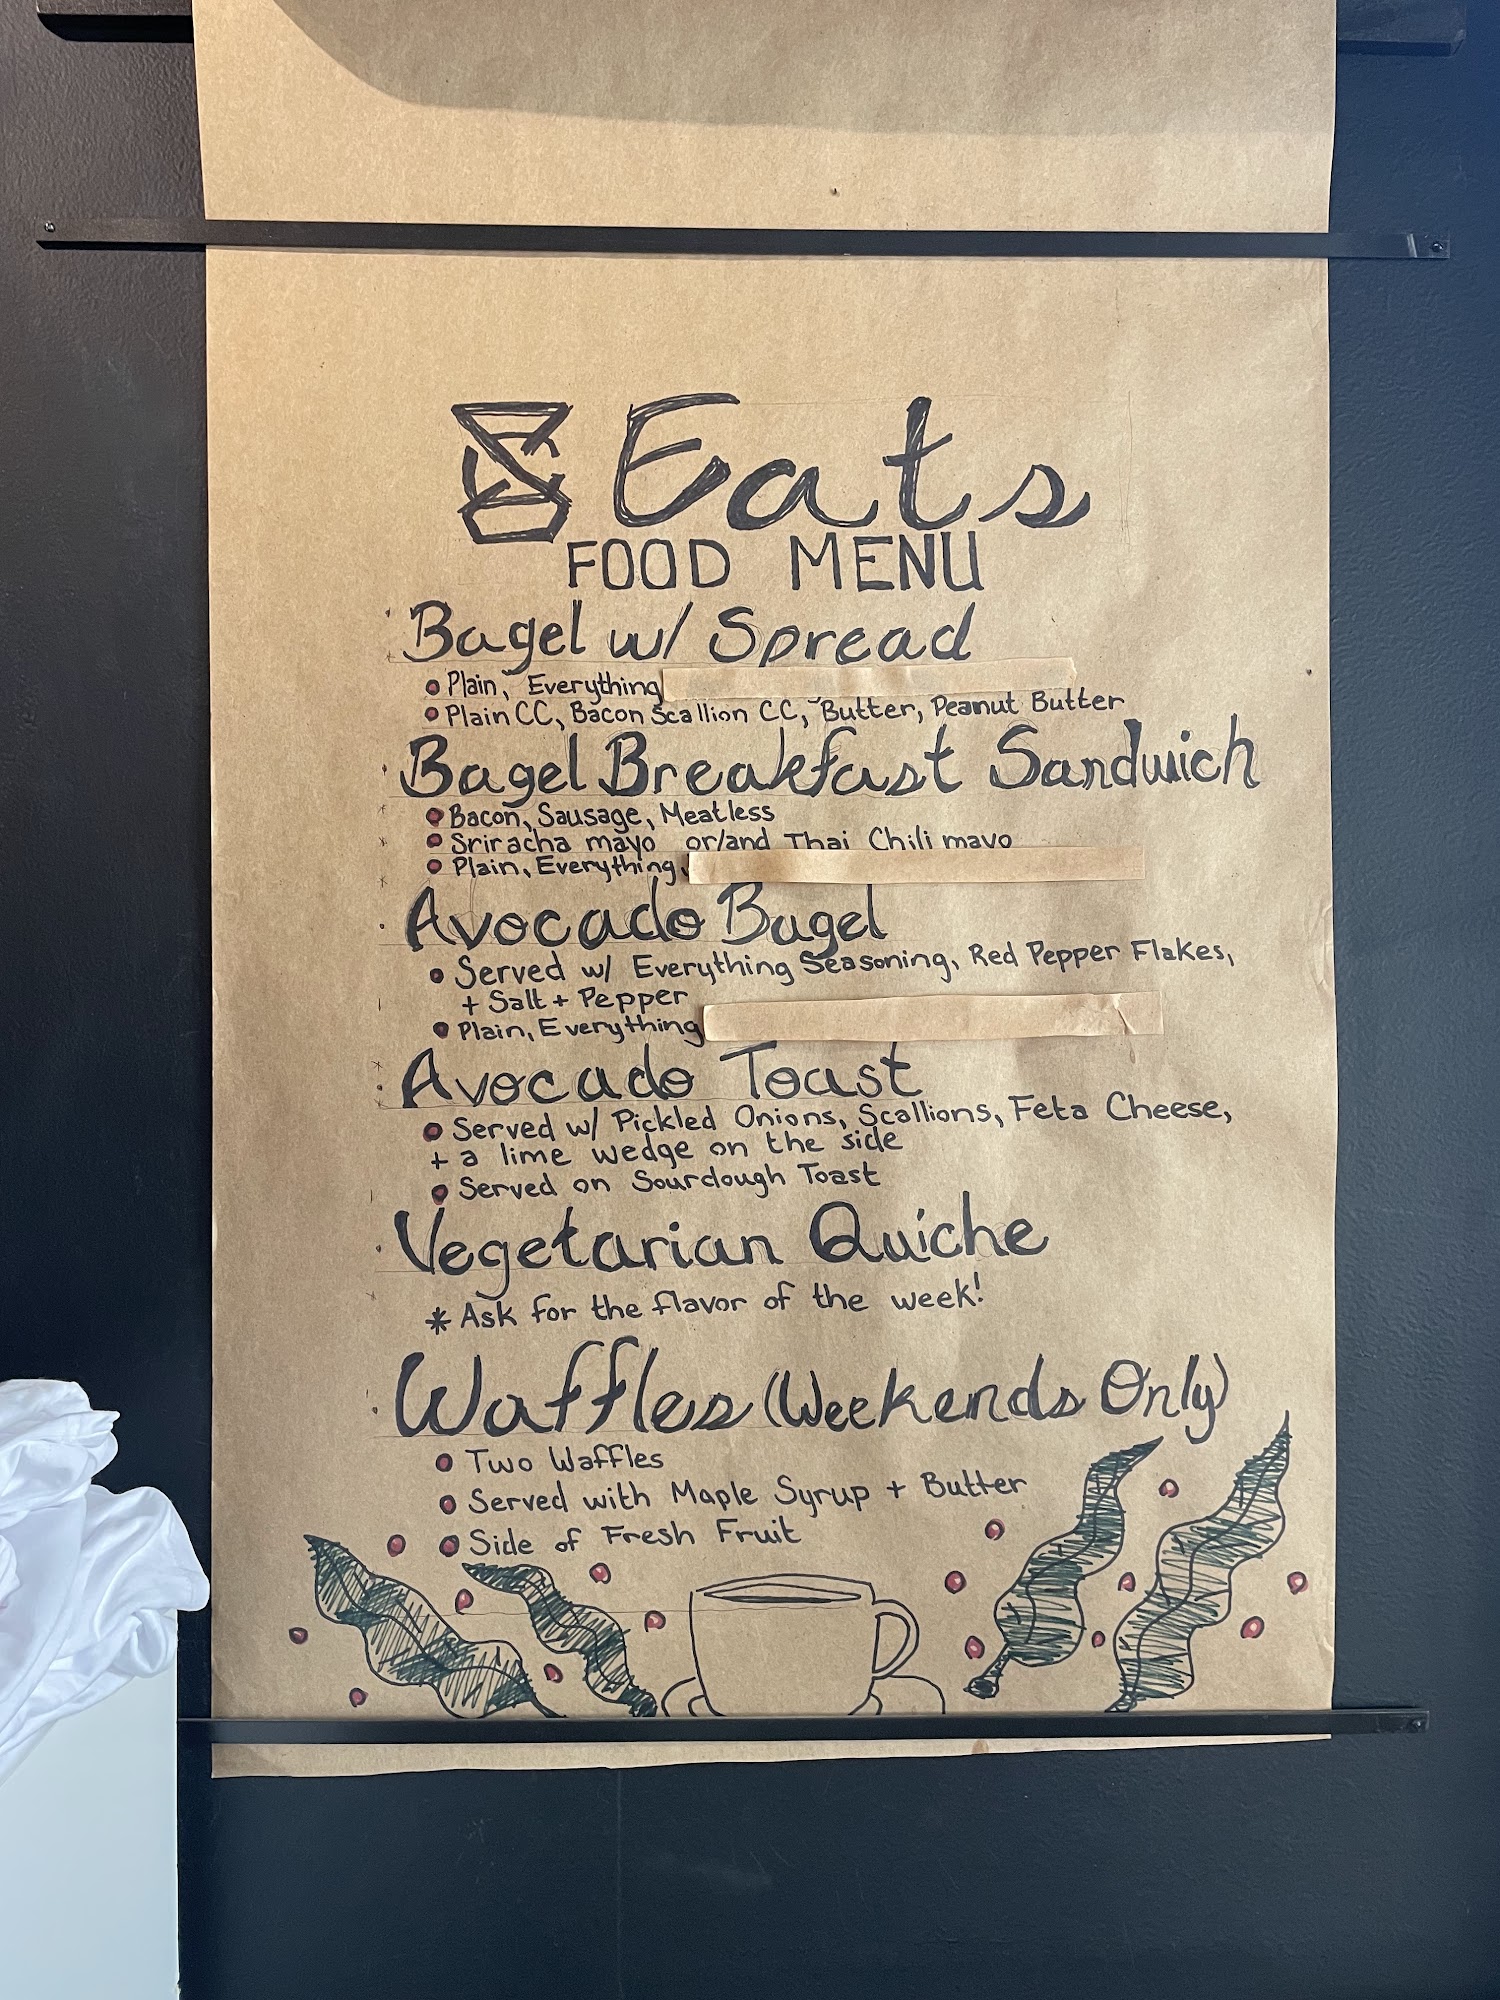 Eats
FOOD MENU
Bagel w/ Spread
Plain, Everything
Plain CC, Bacon Scallion CC, Butter, Peanut Butter
Bagel Breakfast Sandwich
Bacon, Sausage, Meatless
Sriracha mayo or/and Thai Chili mayo
Plain, Everything,
Avocado Bagel
Served w/ Everything Seasoning, Red Pepper Flakes,
+ Salt + Pepper
Plain, Everything
Avocado Toast
Served w/ Pickled Onions, Scallions, Feta Cheese,
+ a lime wedge on the side
Served on Sourdough Toast
Vegetarian Quiche
* Ask for the flavor of the week!
Waffles (Weekends Only)
Two Waffles
Served with Maple Syrup + Butter
Side of Fresh Fruit